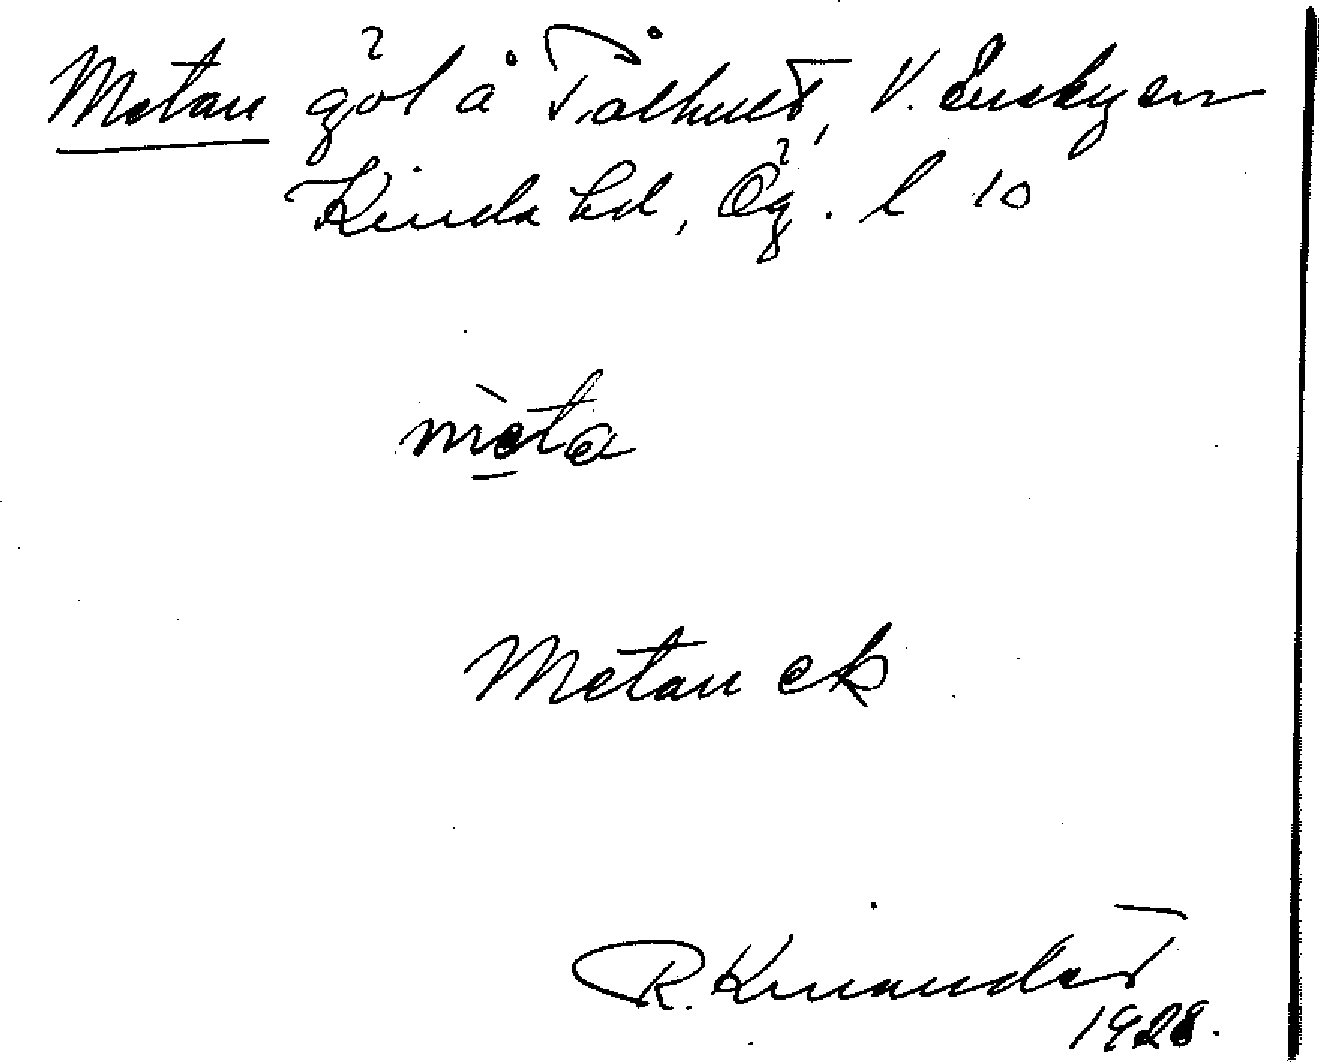 Metan göl å Tålhult, V. Eneby sn
Kinda hd, Ög. l 10
mèta
Metan ek
R. Kinander
1928.